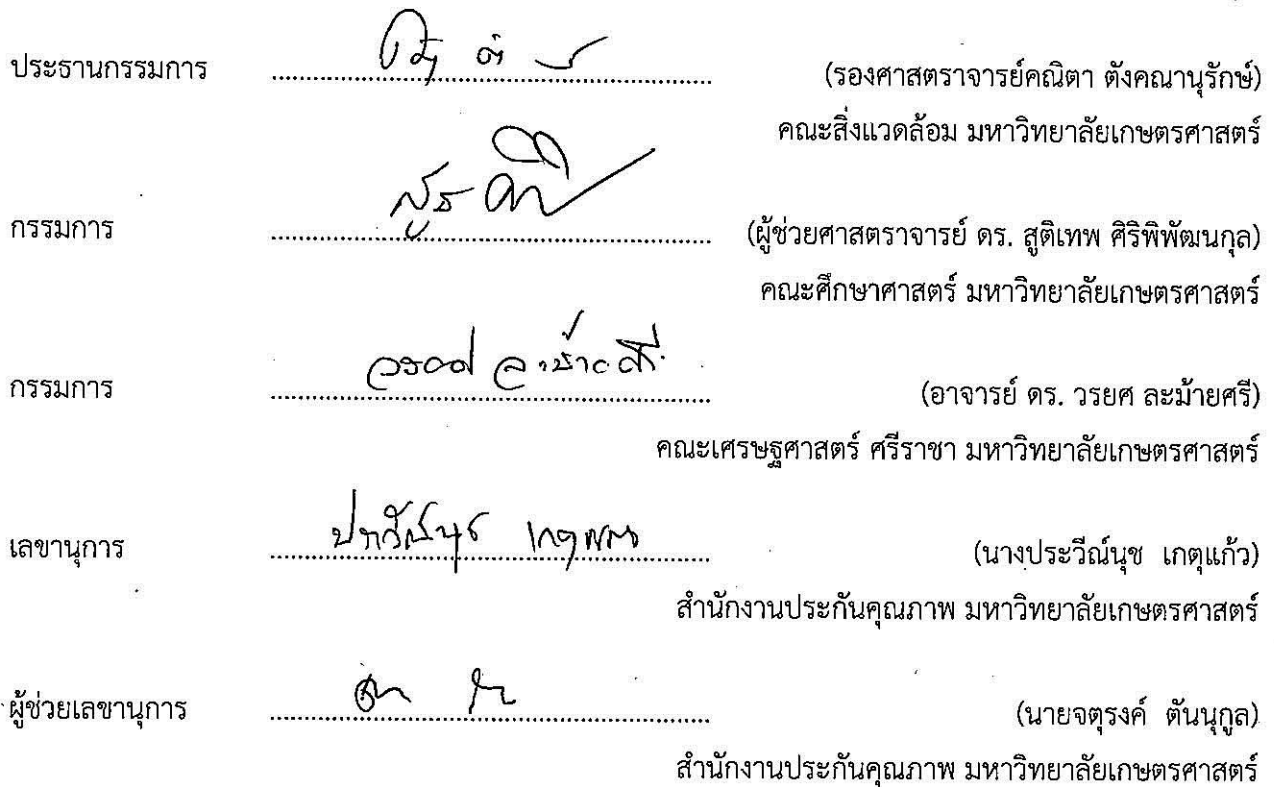 ประธานกรรมการ (รองศาสตราจารย์คณิตา ตังคณานุรักษ์)
คณะสิ่งแวดล้อม มหาวิทยาลัยเกษตรศาสตร์
กรรมการ (ผู้ช่วยศาสตราจารย์ ดร. สูติเทพ ศิริพิพัฒนกุล)
คณะศึกษาศาสตร์ มหาวิทยาลัยเกษตรศาสตร์
กรรมการ (อาจารย์ ดร. วรยศ ละม้ายศรี)
คณะเศรษฐศาสตร์ ศรีราชา มหาวิทยาลัยเกษตรศาสตร์
เลขานุการ (นางประวีณ์นุช เกตุแก้ว)
สำนักงานประกันคุณภาพ มหาวิทยาลัยเกษตรศาสตร์
ผู้ช่วยเลขานุการ (นายจตุรงค์ ตันนุกูล)
สำนักงานประกันคุณภาพ มหาวิทยาลัยเกษตรศาสตร์